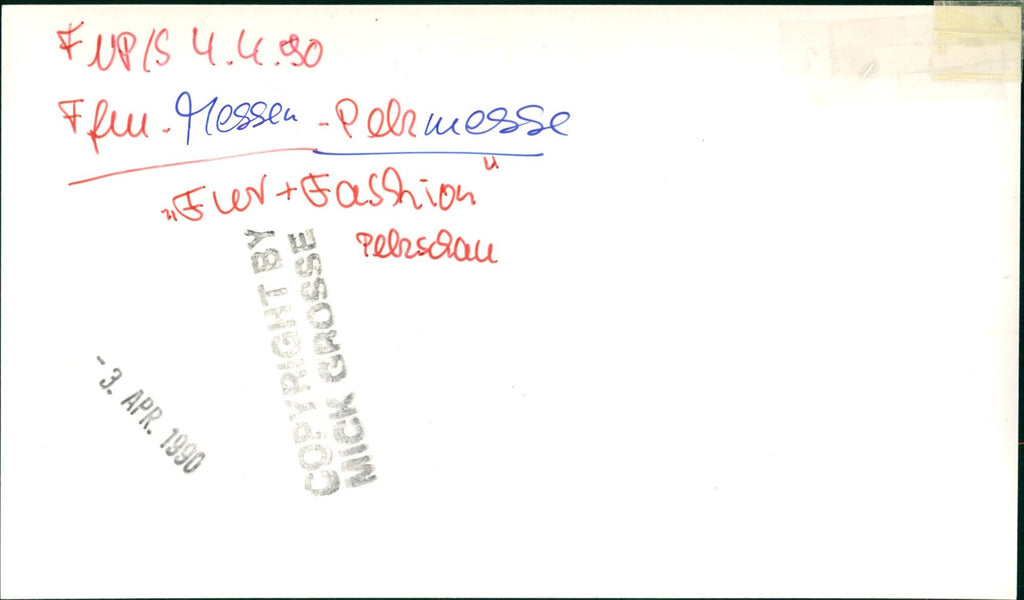 FNP/S 4.4.90
Ffm.-Messen-Pelzmesse
„Fur + Fashion"
Pelzschau
COPYRIGHT BY
MICK GROSSE
-3. APR. 1990